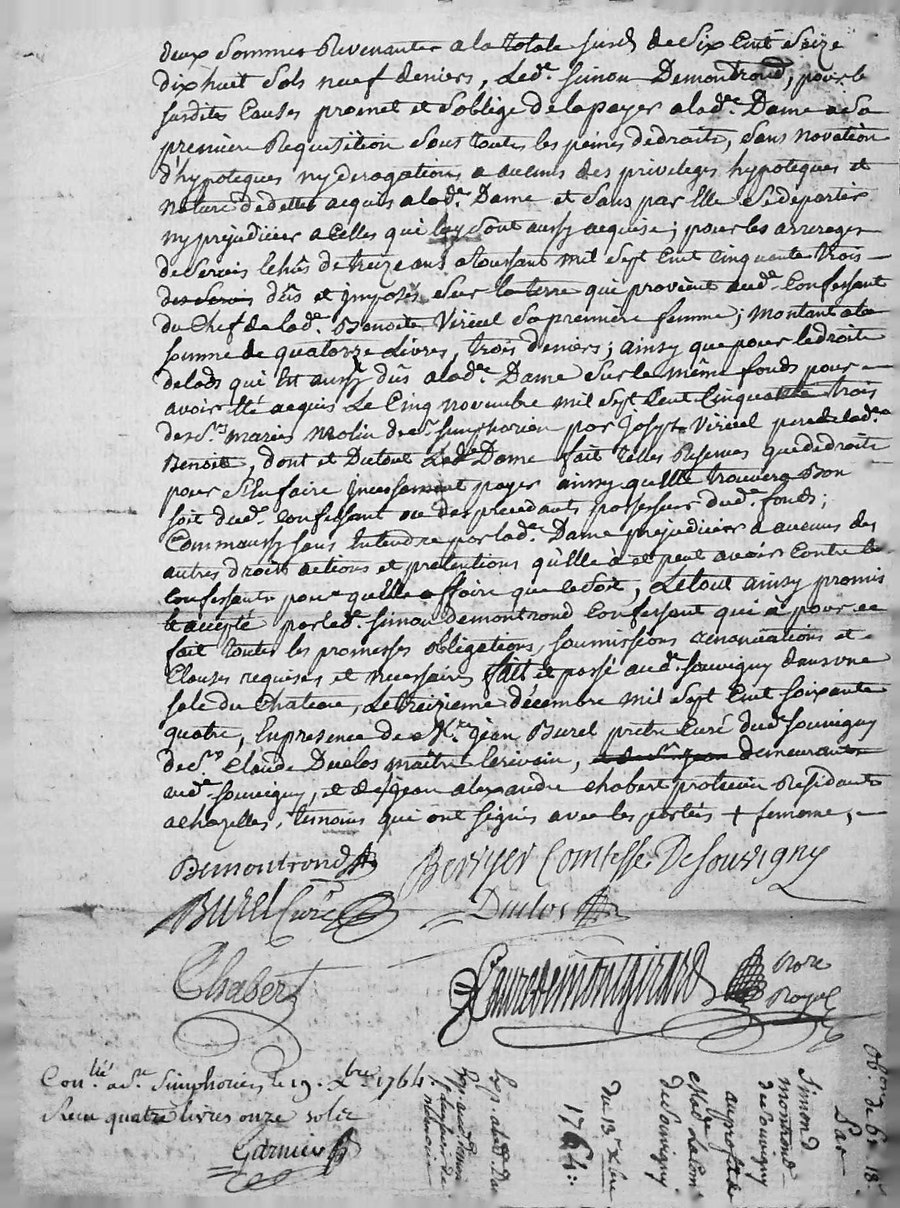 deux sommes Revenantes a la totale susd. de Six Cent Seize
dixhuit sols neuf deniers, Led.t Simon Demontrond, pour le
susdites Causes promet et soblige de la payer a lad.e Dame a Sa
premiere Requisition sous toutes les peines de droits, sans novation
d'hypoteques ny derogations a aucuns des privileges hypoteques et
nature de dettes acquis a lad.e Dame et sans par Elle se departir
ny prejudicier a Celles qui luy sont aussy acquise; pour les arrerages
de servis Echûs de treize ans a toussant mil Sept Cent cinquante trois
des servis dûs et imposés sur la terre qui provient aud.t Confessant
du Chef de lad.e Benoite Viricel sa premiere femme; montant a la
somme de quatorze Livres, trois deniers; ainsy que pour le droit
delods qui Est aussy dûs a lad.e Dame sur le même fonds pour
avoir Eté acquis le Cinq novembre mil Sept Cent Cinquante trois
de s.r marie molin de s.t simphorien par Joseph Viricel pere de lad.e
Benoite, dont et Dutout Lad.e Dame fait telles Reserves que de droits
pour s'En faire incessament payer ainsy qu'Elle trouvera Bon
soit dud.t Confessant ou des precedants possesseurs dud.t fonds;
Comm'aussy sans Entendre par lad.e Dame prejudicier a aucuns des
autres droits actions et pretentions qu'Elle à et peut avoir Contre le
Confessant pour quelle affaire que ce soit, Le tout ainsy promis
et accepté par led.t Simon demontrond Confessant qui à pour ce
fait toutes les promesses obligations, soumissions renonciations et
Clauses requises et necessaires fait et passé aud.t Souvigny dans une
sale du Chateau, Le treizieme décembre mil Sept Cent soixante
quatre, En presence de M.re jean Burel prêtre Curé dud.t Souvigny
de s.r Claude Duclos maître Ecrivain, demeurants
aud.t Souvigny, et de s.r jean alexandre chabert praticien Residant
a chazelles, temoins qui ont signés avec les parties + femme,
Demontrond
Berryer Comtesse De Souvigny
Burel Curé
Duclos
Chabert
Laure de mongirard
Nore
Royal
Con.lé a s.t Simphorien, le 19. xbre 1764.
Recu quatre livres onze sols
Garnier
Ob.on de 616 18
Par
Simond
montrond
de Souvigny
au profit de
Mad.e La Com.
de Souvigny
du 13 xbre
1764: